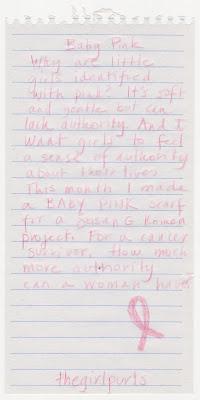 Baby Pink
Why are little
girls identified
with pink? It's soft
and gentle but can
lack authority. And I
want girls to feel
a sense of authority
about their lives
This month I made
a BABY PINK scarf
for a Susan G Komen
project. For a cancer
survivor. How much
more authority
can a woman have?
thegirlpurls